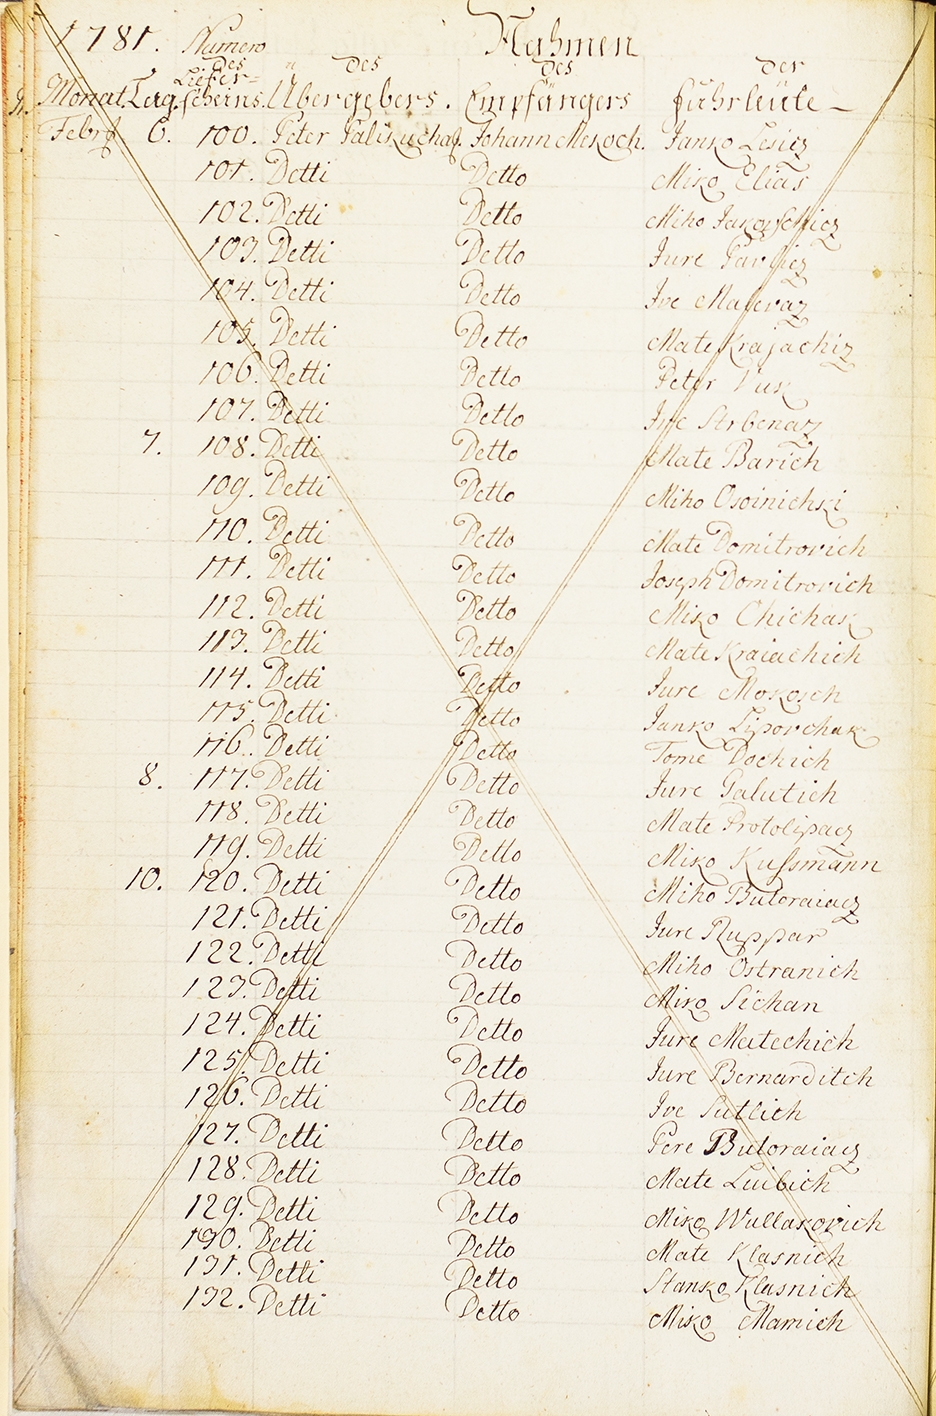 1781. Numero Nahmen
des des des der
Liefer=
Monat. Tag. scheins. Übergebers. Empfängers fuhrleüte
Febr 6. 100. Peter Johann Janko Lesicz
101. Detti Detto Miko Elias
102. Detti Detto Miho
103. Detti Detto Jure
104. Detti Detto Ive
105. Detti Detto Mate Krajachiz
106. Detti Detto Peter Vuk
107. Detti Detto Ive Strbenaz
7. 108. Detti Detto Mate Barich
109. Detti Detto Miho Osoinichki
110. Detti Detto Mate Domitrovich
111. Detti Detto Joseph Domitrovich
112. Detti Detto Miko Chichak
113. Detti Detto Mate Kraiachich
114. Detti Detto Jure Mokosch
115. Detti Detto Janko Lipovchak
116. Detti Detto Tome Dochich
8. 117. Detti Detto Jure Galutich
118. Detti Detto Mate Protolipacz
119. Detti Detto Miko Kussmann
10. 120. Detti Detto Miho Butoraiacz
121. Detti Detto Jure Ruppar
122. Detti Detto Miho Ostranich
123. Detti Detto Miko Sichan
124. Detti Detto Jure Matechich
125. Detti Detto Jure Bernarditch
126. Detti Detto Ive Sutlich
127. Detti Detto Pere Butoraiacz
128. Detti Detto Mate Luibich
129. Detti Detto Miko Wullakovich
130. Detti Detto Mate Klasnich
131. Detti Detto Stanko Klasnich
132. Detti Detto Miko Mamich